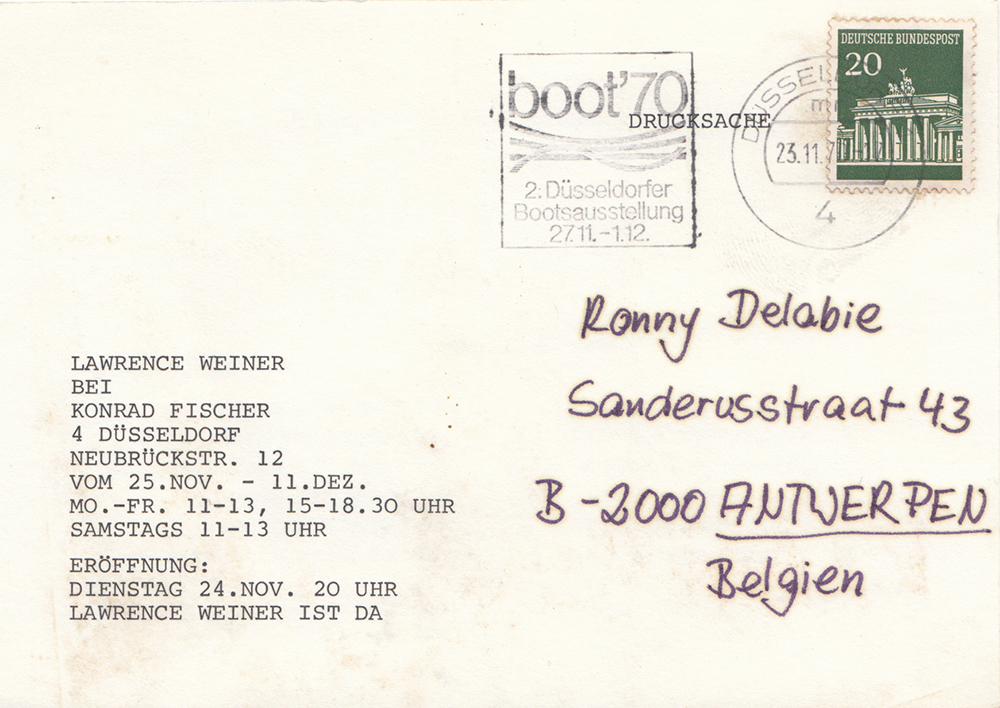 DEUTSCHE BUNDESPOST
20
boot'70
DRUCKSACHE
2. Düsseldorfer
Bootsausstellung
27.11.-1.12.
23.11.
4
Ronny Delabie
Sanderusstraat 43
B-2000 ANTWERPEN
Belgien
LAWRENCE WEINER
BEI
KONRAD FISCHER
4 DÜSSELDORF
NEUBRÜCKSTR. 12
VOM 25.NOV. - 11.DEZ.
MO.-FR. 11-13, 15-18.30 UHR
SAMSTAGS 11-13 UHR
ERÖFFNUNG:
DIENSTAG 24.NOV. 20 UHR
LAWRENCE WEINER IST DA